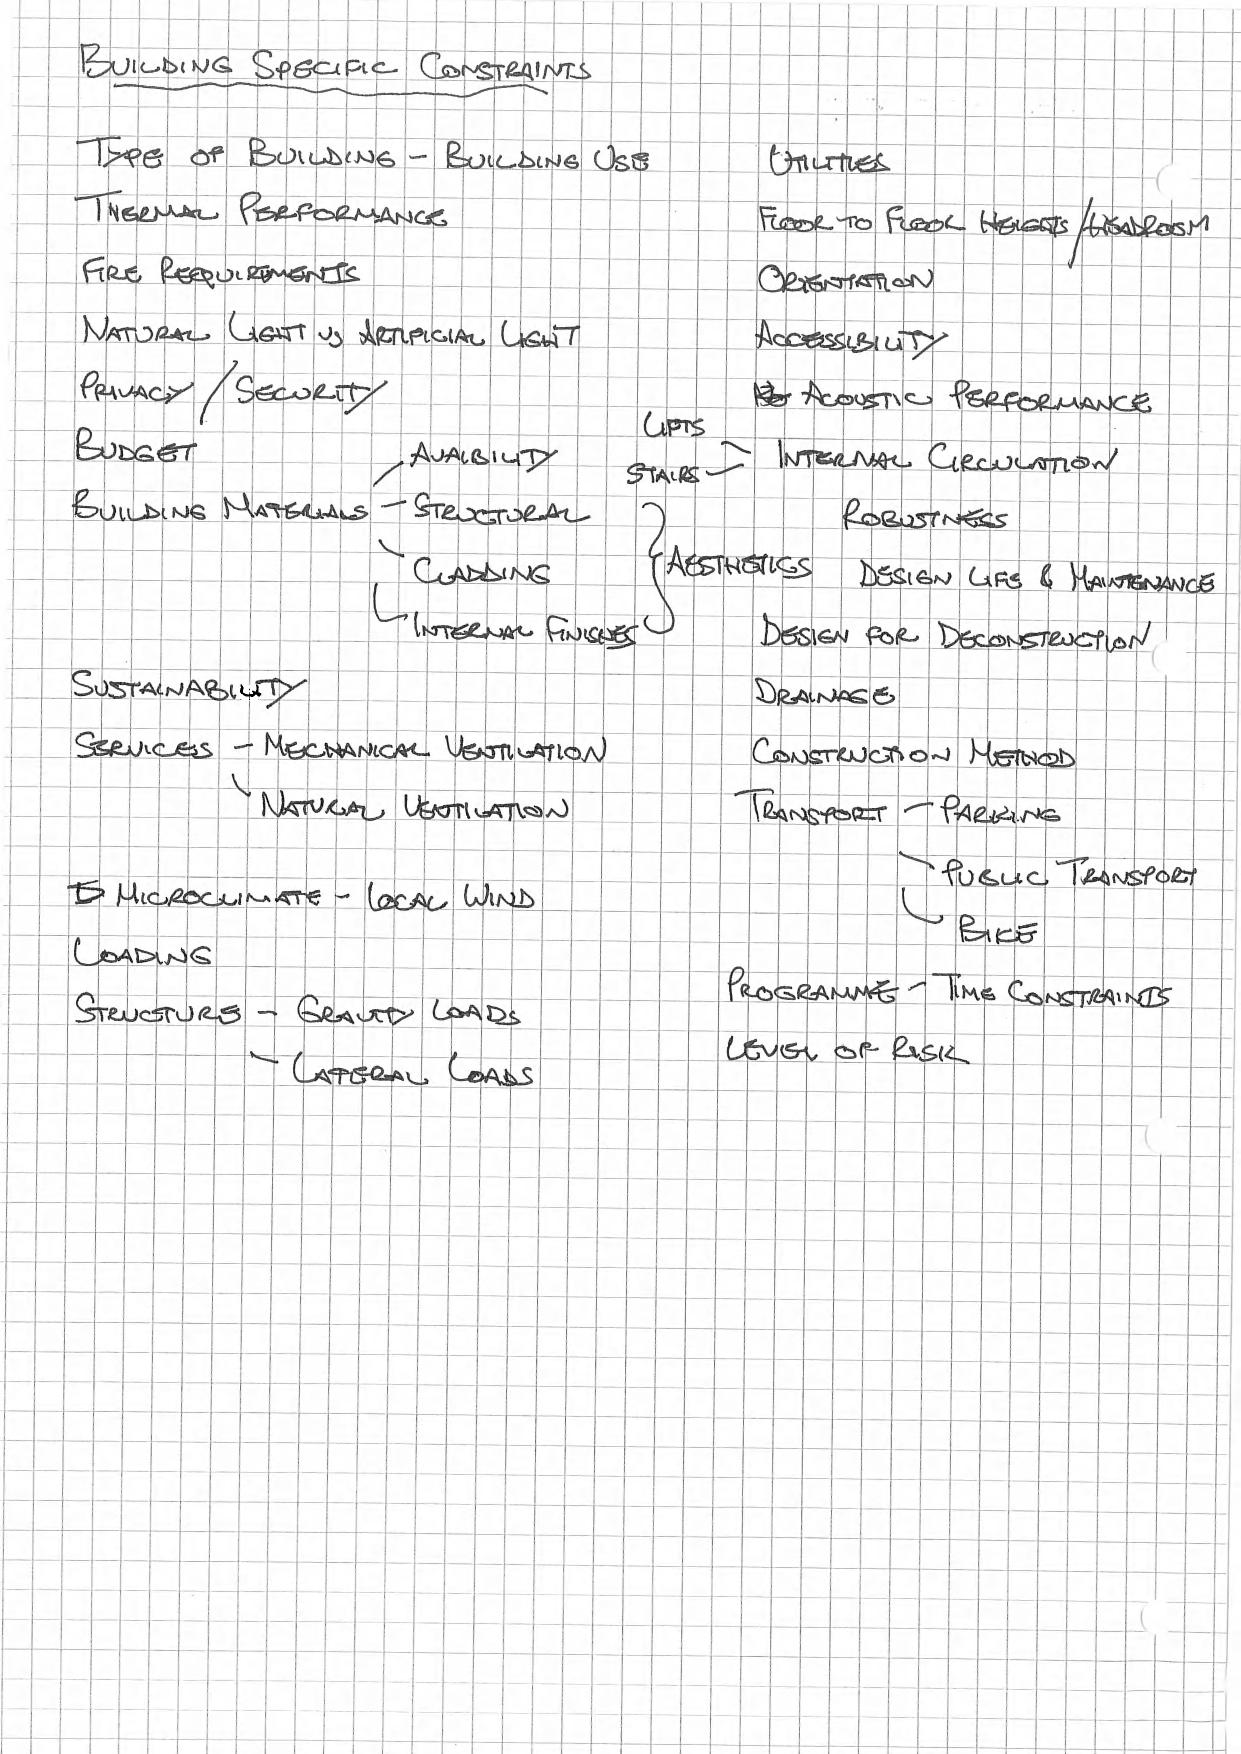 BUILDING SPECIFIC CONSTRAINTS
TYPE OF BUILDING - BUILDING USE
THERMAL PERFORMANCE
FIRE REEQUIREMENTS
NATURAL LIGHT VS ARTIFICIAL LIGHT
PRIVACY / SECURITY
BUDGET
BUILDING MATERIALS - AVAIBILITY
- STRUCTURAL
CLADDING
INTERNAL FINISHES
AESTHETICS
SUSTAINABILITY
SERVICES - MECHANICAL VENTILATION
NATURAL VENTILATION
MICROCLIMATE - LOCAL WIND
LOADING
STRUCTURE - GRAVITY LOADS
LATERAL LOADS
UTILITIES
FLOOR TO FLOOR HEIGHTS / HEADROOM
ORIENTATION
ACCESSIBILITY
ACOUSTIC PERFORMANCE
LIFTS
STAIRS - INTERNAL CIRCULATION
ROBUSTNESS
DESIGN LIFE & MAINTENANCE
DESIGN FOR DECONSTRUCTION
DRAINAGE
CONSTRUCTION METHOD
TRANSPORT - PARKING
PUBLIC TRANSPORT
BIKE
PROGRAMME - TIME CONSTRAINTS
LEVEL OF RISK